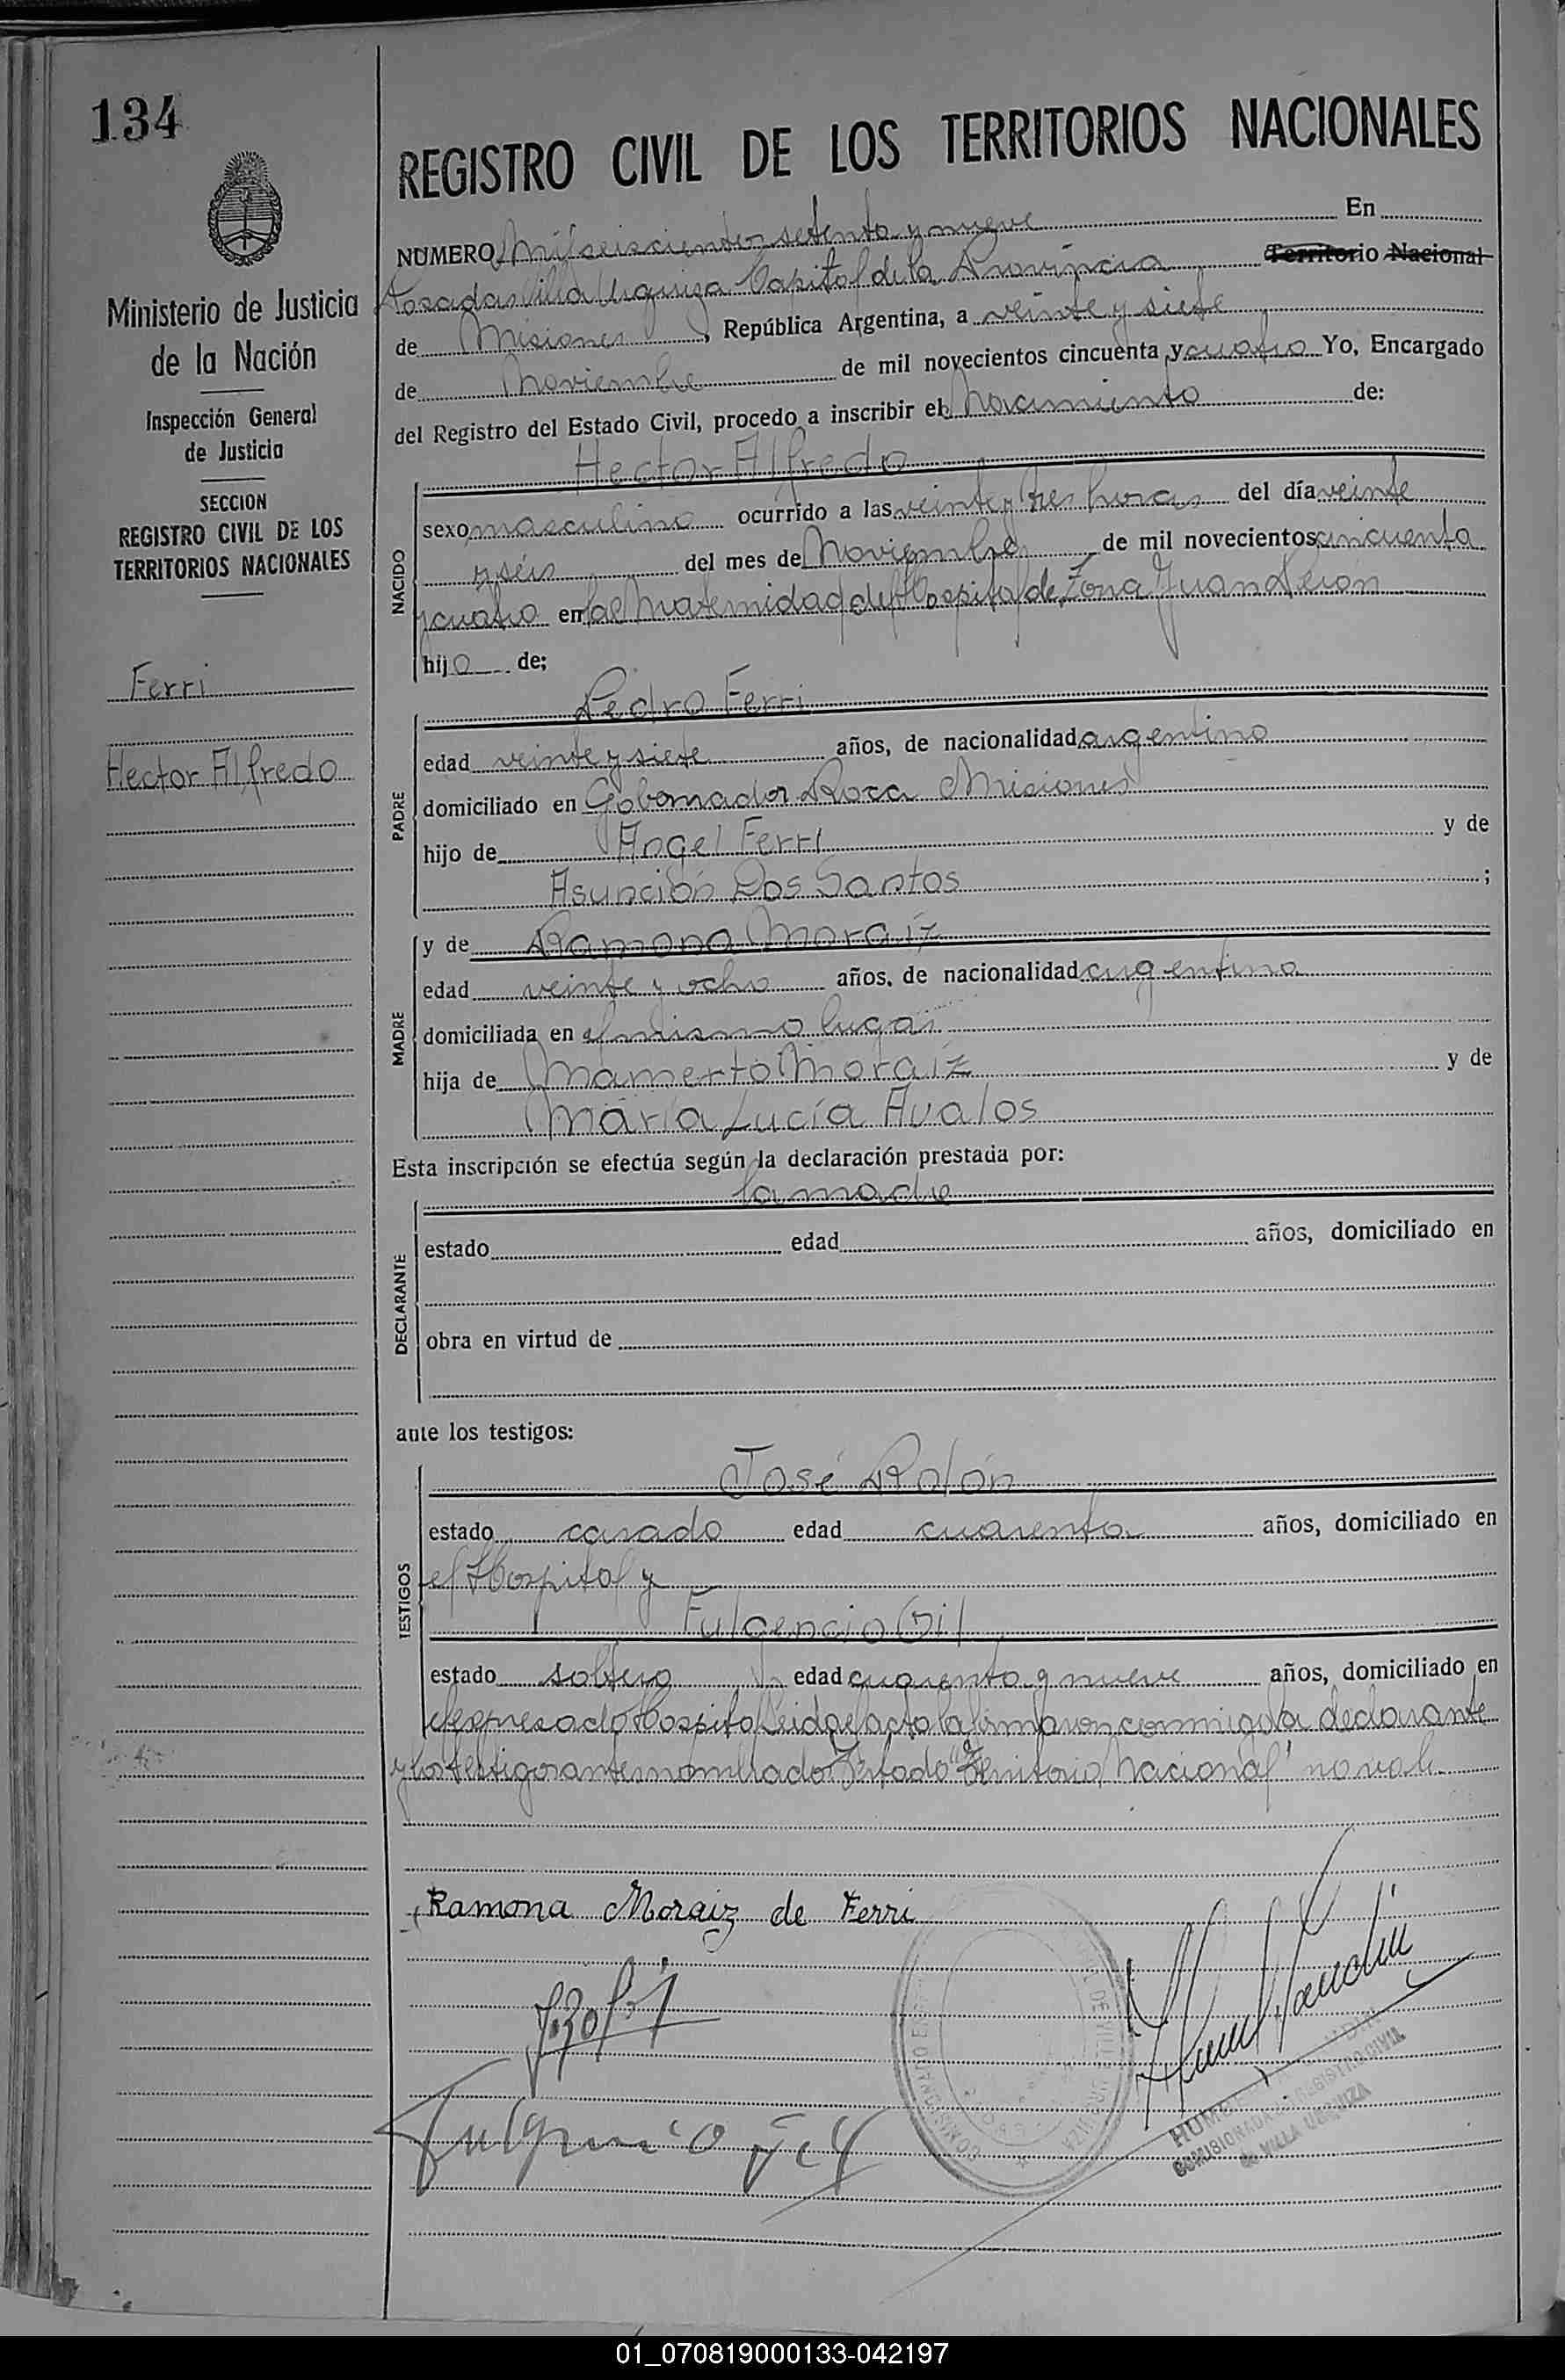 134
Ministerio de Justicia
de la Nación
Inspección General
de Justicia
SECCION
REGISTRO CIVIL DE LOS
TERRITORIOS NACIONALES
Ferri
Hector Alfredo
REGISTRO CIVIL DE LOS TERRITORIOS NACIONALES
NUMERO Mil seiscientos setenta y nueve En
Posadas Villa Urquiza Capital de la Provincia Territorio Nacional
de Misiones, República Argentina, a veinte y siete
de Noviembre de mil novecientos cincuenta y cuatro Yo, Encargado
del Registro del Estado Civil, procedo a inscribir el Nacimiento de:
Hector Alfredo
NACIDO
sexo masculino ocurrido a las veinte y tres horas del día veinte
y séis del mes de Noviembre de mil novecientos cincuenta
y cuatro en la Maternidad del Hospital de Zona Juan Perón
hijo de;
Pedro Ferri
PADRE
edad veinte y siete años, de nacionalidad argentino
domiciliado en Gobernador Roca Misiones
hijo de Angel Ferri y de
Asunción Dos Santos ;
y de Ramona Moraíz
MADRE
edad veinte y ocho años, de nacionalidad argentina
domiciliada en el mismo lugar
hija de Mamerto Moraíz y de
María Lucía Avalos
Esta inscripción se efectúa según la declaración prestada por:
la madre
DECLARANTE
estado edad años, domiciliado en
obra en virtud de
ante los testigos:
José Rolón
TESTIGOS
estado casado edad cuarenta años, domiciliado en
el Hospital y
Fulgencio Gil
estado soltero edad cuarenta y nueve años, domiciliado en
el expresado Hospital Leida el acta la firmaron conmigo la declarante
y los testigos antes nombrados Testado "Territorio Nacional" no vale.
Ramona Moraiz de Ferri
Fulgencio Gil
COMISIONADA REGISTRO CIVIL
de VILLA URQUIZA
01_070819000133-042197